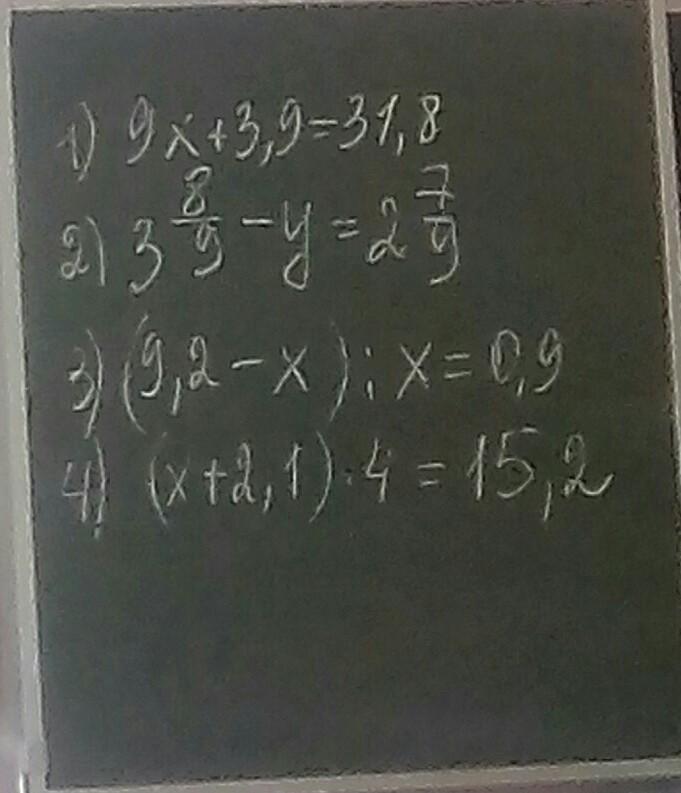 1) 9x+3,9=31,8
2) 3 8/9 - y = 2 7/9
3) (9,2 - x) : x = 0,9
4) (x+2,1) · 4 = 15,2